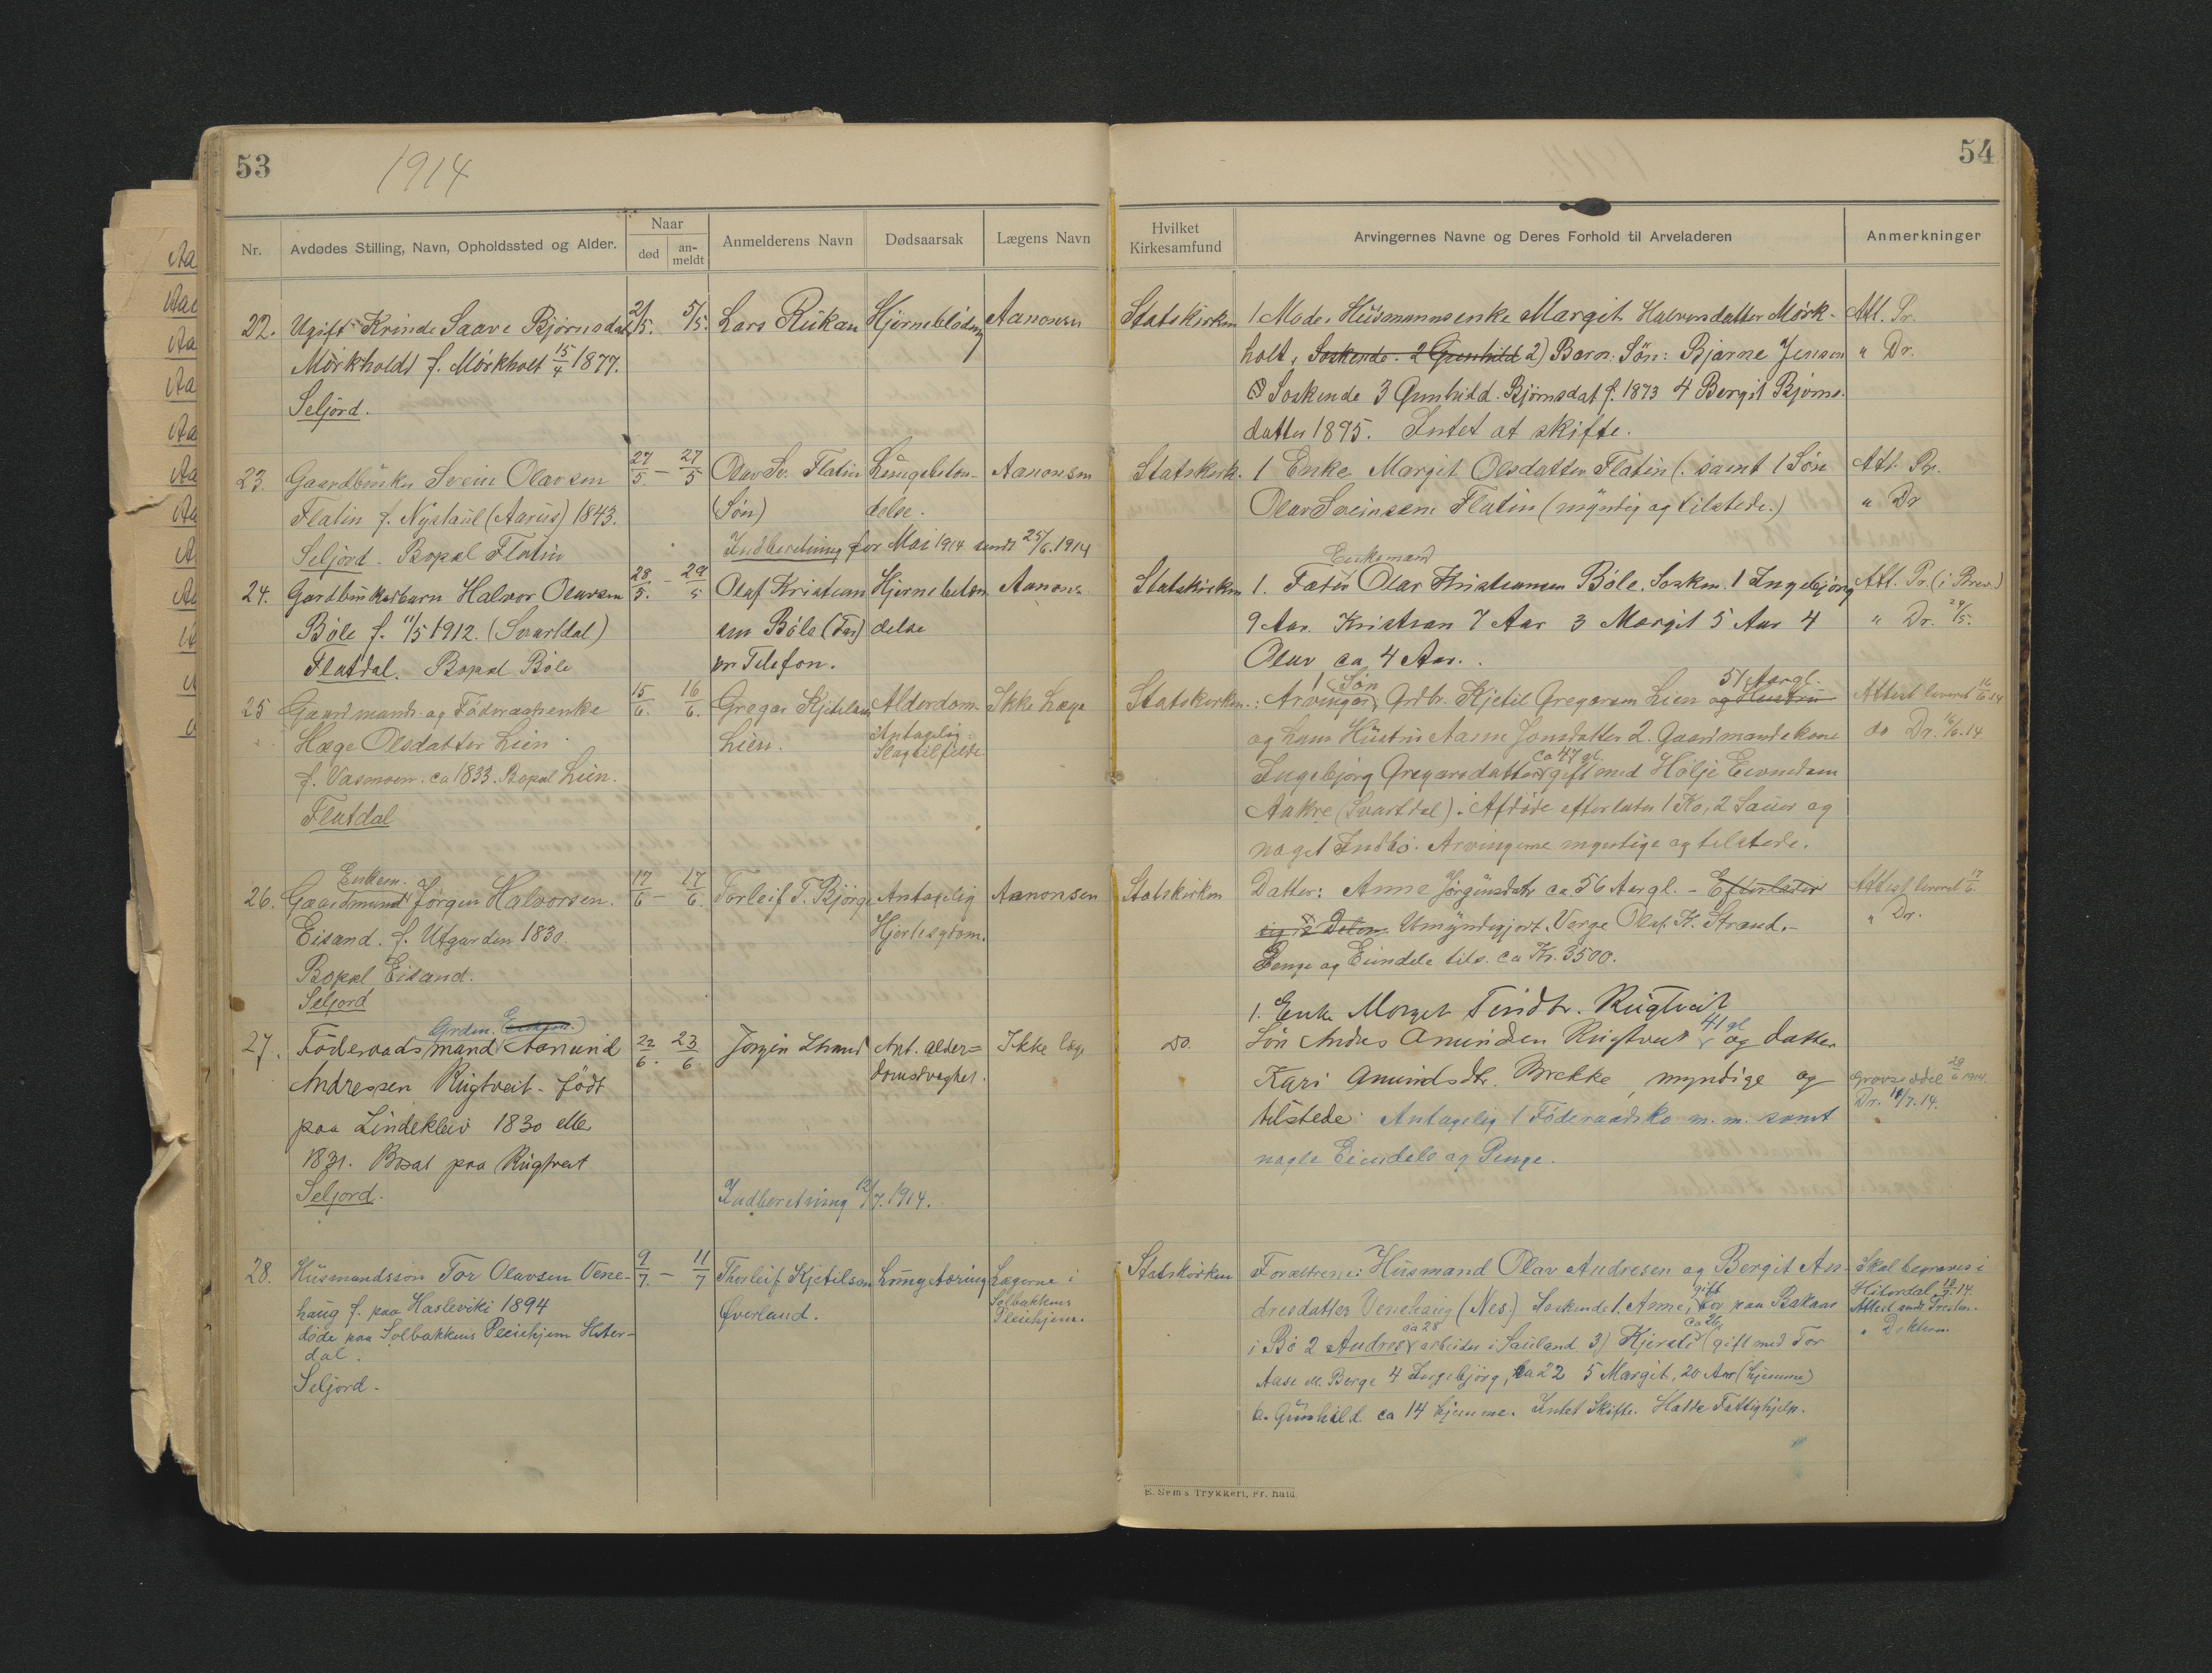 53
1914
Nr.
Avdødes Stilling, Navn, Opholdssted og Alder.
Naar
død
an-
meldt
Anmelderens Navn
Dødsaarsak
Lægens Navn
22. Ugift Kvinde Saave Bjørnsdat 2/5. 5/5. Lars Rukan Hjerneblødning Aanonsen
Mørkholdt f. Mørkholt 15/4 1877.
Seljord.
23. Gaardbruker Svein Olavsen 27/5. — 27/5 Olav Sv. Flatin Lungebeten- Aanonsen
Flatin f. Nystaul (Aarus) 1843. (Søn) delse.
Seljord. Bopæl Flatin Indberetning for Mai 1914 sendt 25/6. 1914
24. Gardbrukerbarn Halvor Olavsen 28/5. - 29/5 Olaf Kristian Hjernebeten Aanons.
Bøle f. 11/5 1912. (Svartdal) sen Bøle (Far) delse
Flatdal. Bopæl Bøle pr Telefon.
25 Gaardmands- og Føderaadsenke 15/6. 16/6. Gregar Kjetilsen Alderdom. Ikke Læge
Hæge Olsdatter Lien. Lien. Antagelig
f. Vasmoen. ca 1833. Bopæl Lien. Slagtilfelde
Flatdal
Enkem.
26. Gaardmand Jørgen Halvorsen. 17/6 — 17/6. Torleif T. Bjørge Antagelig Aanonsen
Eisand. f. Utgarden 1830. Hjertesygdom.
Bopæl Eisand.
Seljord
Grdm. Enkem.
27. Føderaadsmand Aanund 22/6. 23/6. Jørgen Strand Ant. alder= Ikke læge
Andressen Rugtveit - født domssvaghet.
paa Lindekleiv 1830 eller
1831. Bosat paa Rugtveit
Seljord. Indberetning 12/7. 1914.
28. Husmandssøn Tor Olavsen Vene- 9/7. — 11/7 Thorleif Kjetilsen Lungetæring Lægerne i
haug f. paa Hasleviki 1894 Øverland. Solbakkens
døde paa Solbakkens Pleiehjem Hiter- Pleiehjem.
dal.
Seljord.
54
Hvilket
Kirkesamfund
Arvingernes Navne og Deres Forhold til Arveladeren
Anmerkninger
Statskirken 1 Moder Husmannsenke Margit Halvorsdatter Mørk- Att. Pr.
holt, Søskende. 2 Gunhild 2) Barn: Søn: Bjarne Jensen " Dr.
Søskende 3 Gunhild Bjørnsdat f. 1873 4 Bergit Bjørns-
datter 1895. Intet at skifte.
Statskirk. 1 Enke Margit Olsdatter Flatin (. samt 1 Søn Att. Pr.
Olav Sveinsen Flatin (myndig og tilstede.) " Dr
Enkemand
Statskirken 1. Fader Olav Kristiansen Bøle. Søsken. 1 Ingebjørg Att. Pr. (i Brev.)
9 Aar. Kristian 7 Aar 3 Margit 5 Aar 4 " Dr. 29/5.
Olav ca 4 Aar.
1 Søn 51 Aargl.
Statskirken.: Arvinger, Grdbr. Kjetil Gregarsen Lien og Hustru Attest leveret 16/6 14
og hans Hustru Aasne Jonsdatter 2. Gaardmandskone do Dr. 16/6.14
ca 47 gl.
Ingebjørg Gregarsdatter gift med Hølje Eivindsen
Aakre (Svartdal). Afdøde efterlater 1 Ko, 2 Sauer og
noget Indbo. Arvingerne myndige og tilstede.
Statskirken Datter: Anne Jørgensdtr ca. 56 Aar gl. - Efterlader Attest leveret 17/6.
Umyndiggjort. Verge Olaf K. Strand.- " Dr.
Penge og Eiendele tils. ca Kr. 3500.
1. Enke Morget Tindtr. Rugtveit
41 gl
Do. Søn Andres Amundsen Rugtveit og datter
Kari Amundsdtr. Brekke, myndige og Gravseddel 29/6 1914.
tilstede. Antagelig 1 Føderaadsko m.m. samt Dr. 14/7.14.
nogle Eiendele og Penge.
Statskirken Forældrene: Husmand Olav Andresen og Bergit An- Skal begraves i
gift
dresdatter Venehaug (Nes.) Søskende 1. Anne, bor paa Bakaas Hiterdal 14.
ca 28 ca 26
i Bø 2 Andres arbeider i Sauland 3) Kjersti (gift med Tor Attest sendt Presten.
Aase Berge 4 Ingebjørg, ca 22 5 Margit, 20 Aar (hjemme) " Dokteren.
6. Gunhild ca 14 hjemme. Intet Skifte. Hadde Fattighjelp.
E. Sem's Trykkeri, Fr.hald.